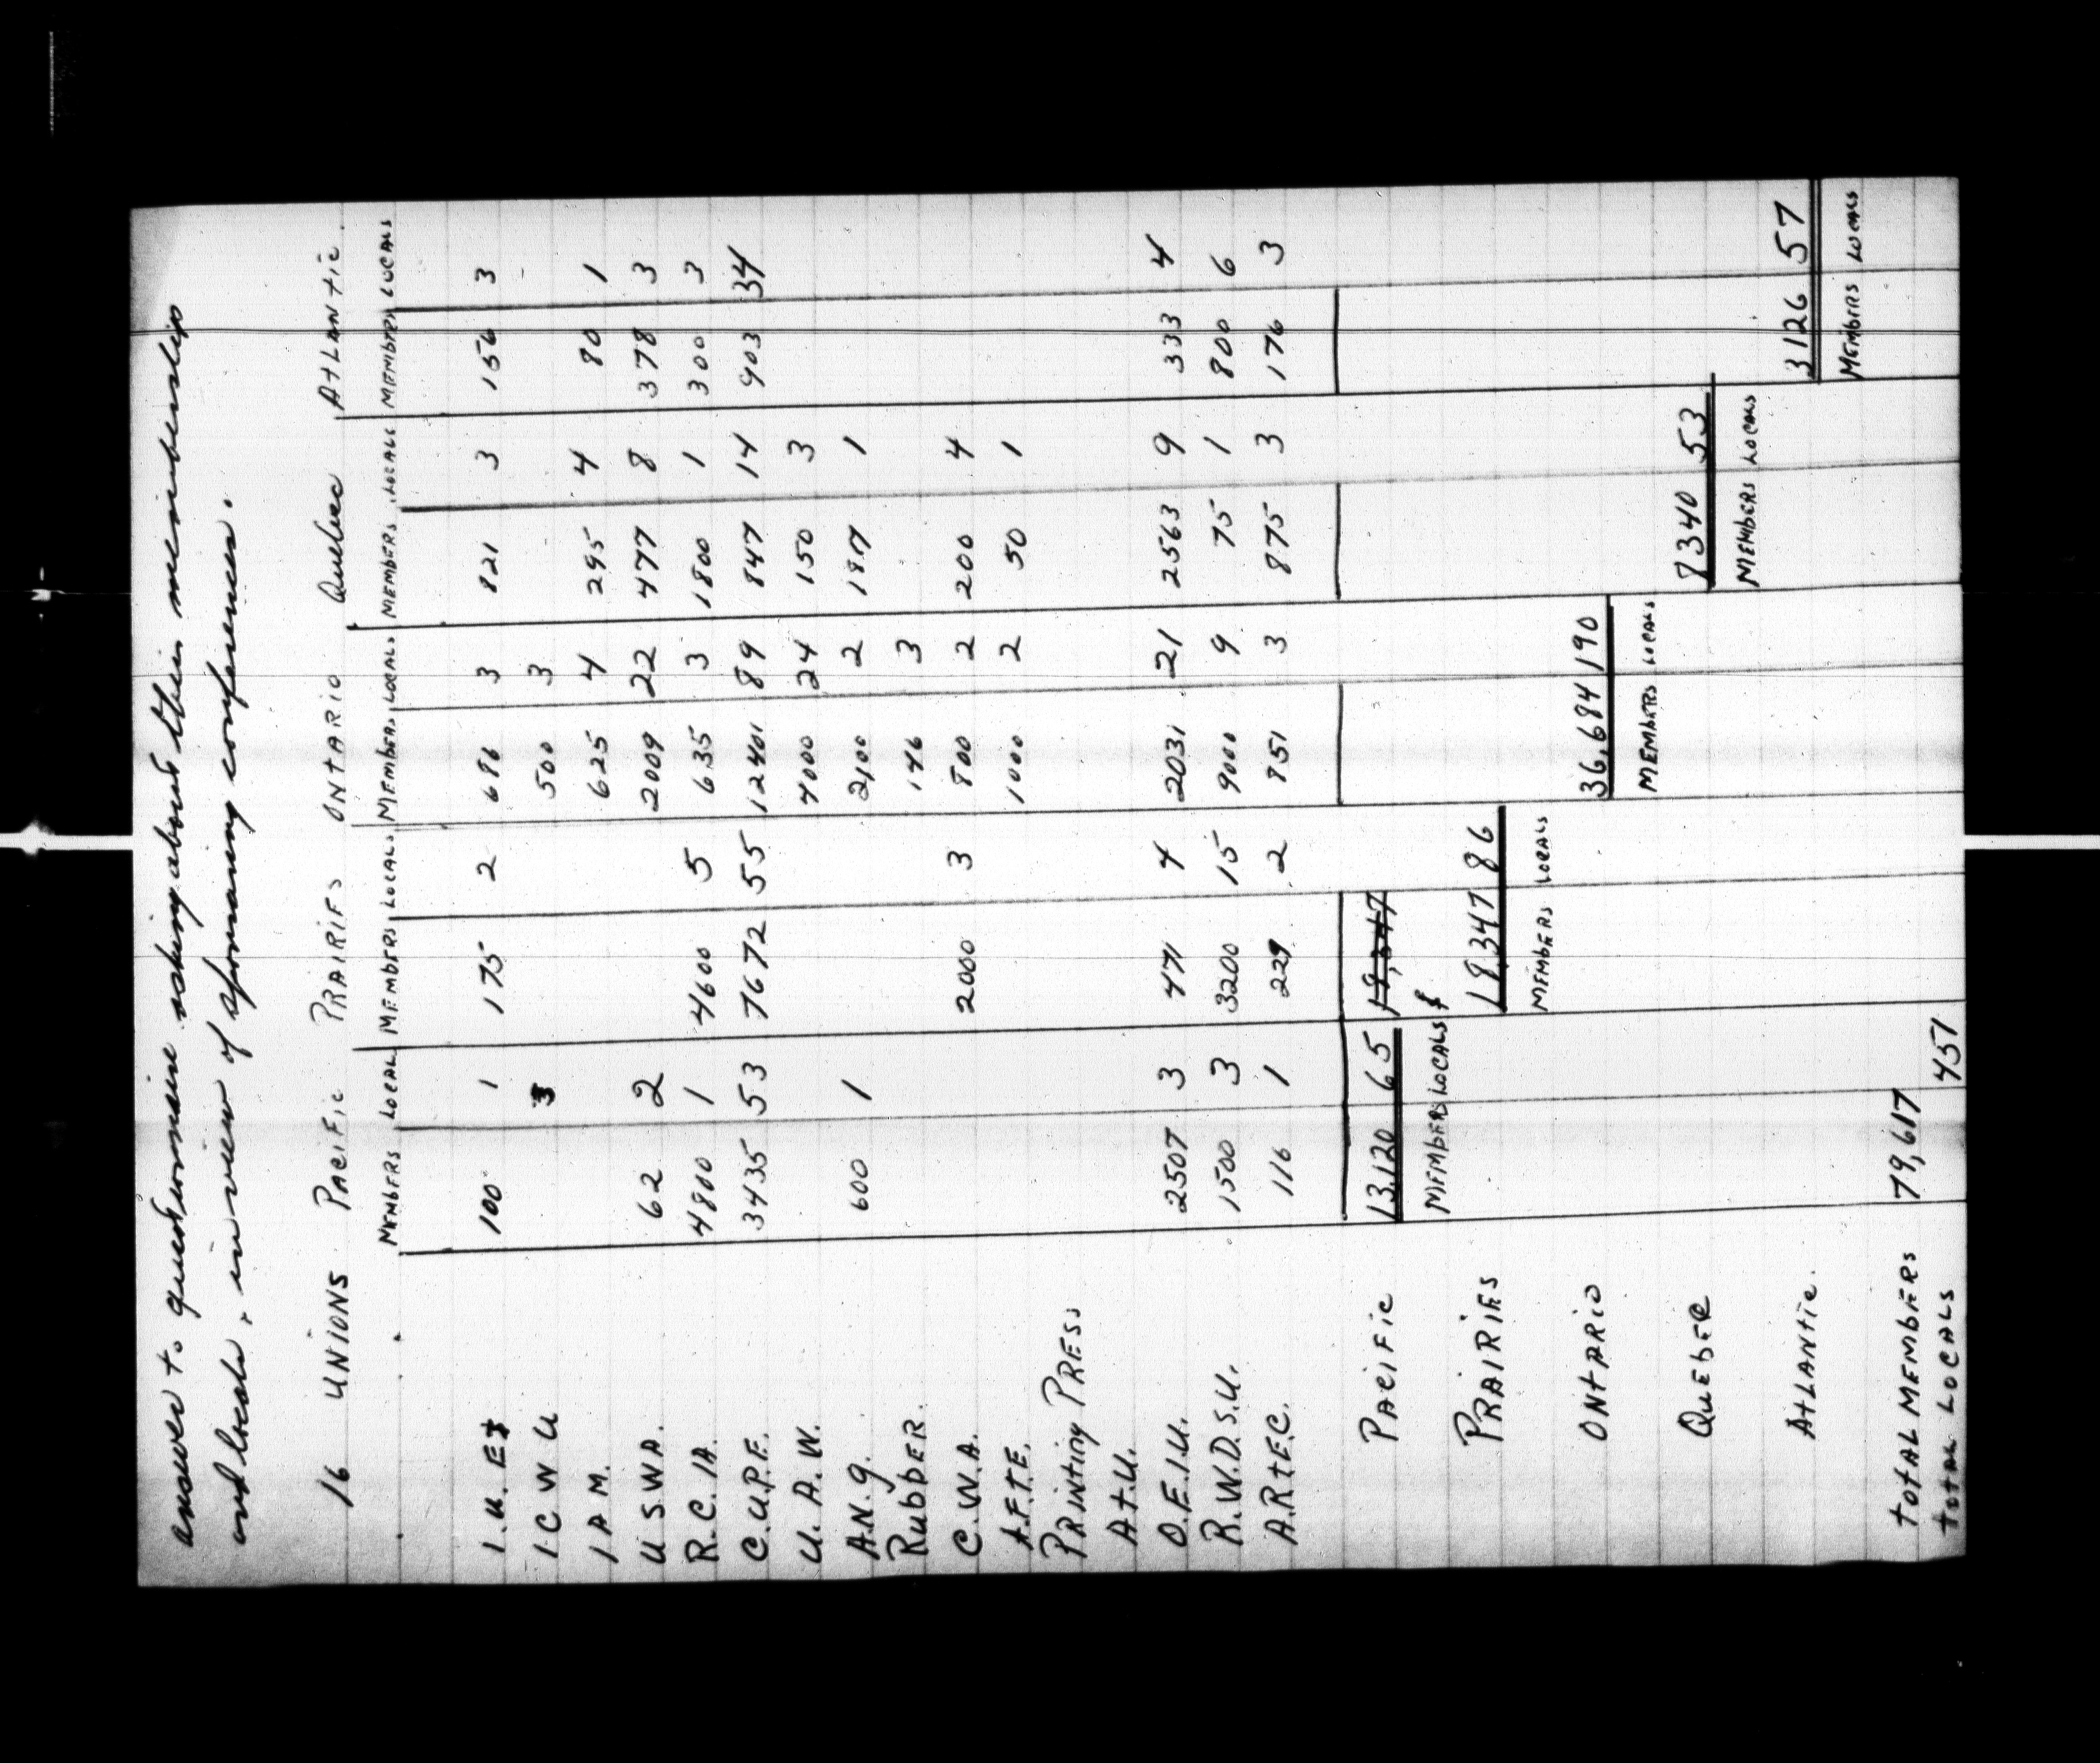 answer to questionnaire asking about their membership
and locals, in view of sponsoring conferences.
16 UNIONS PACIFIC PRAIRIES ONTARIO Quebec ATLANTIC.
MEMBERS LOCAL MEMBERS LOCALS MEMBERS LOCALS MEMBERS LOCALS MEMBERS LOCALS
I.U.E 100 1 175 2 682 3 821 3 156 3
I C W U 3 500 3
I A M. 625 4 295 4 80 1
U S W A. 62 2 2009 22 477 8 378 3
R.C.IA. 4800 1 4600 5 635 3 1800 1 300 3
C.U.P.E. 3435 53 7672 55 12401 89 847 14 903 34
U.A.W. 4000 24 150 3
A.N.G. 600 1 2,100 2 187 1
RubbER. 146 3
C.W.A. 2000 3 800 2 200 4
A.F.T.E. 1000 2 50 1
PRINting PRESS
A.t.U.
O.E.I.U. 2507 3 471 4 2031 21 2563 9 333 4
R.W.D.S.U. 1500 3 3200 15 9000 9 75 1 800 6
A.RtEC. 116 1 229 2 851 3 875 3 176 3
PACIFIC 13,120 65 18,347
MEMBERS LOCALS
PRAIRIES 18,347 86
MEMBERS LOCALS
ONtARIO 36,684 190
MEMBERS LOCALS
QuEbER 8340 53
MEMBERS LOCALS
AtLANtic. 3126 57
MEMBERS LOCALS
tOtAL MEMBERS 79,617
tOtAL LOCALS 451